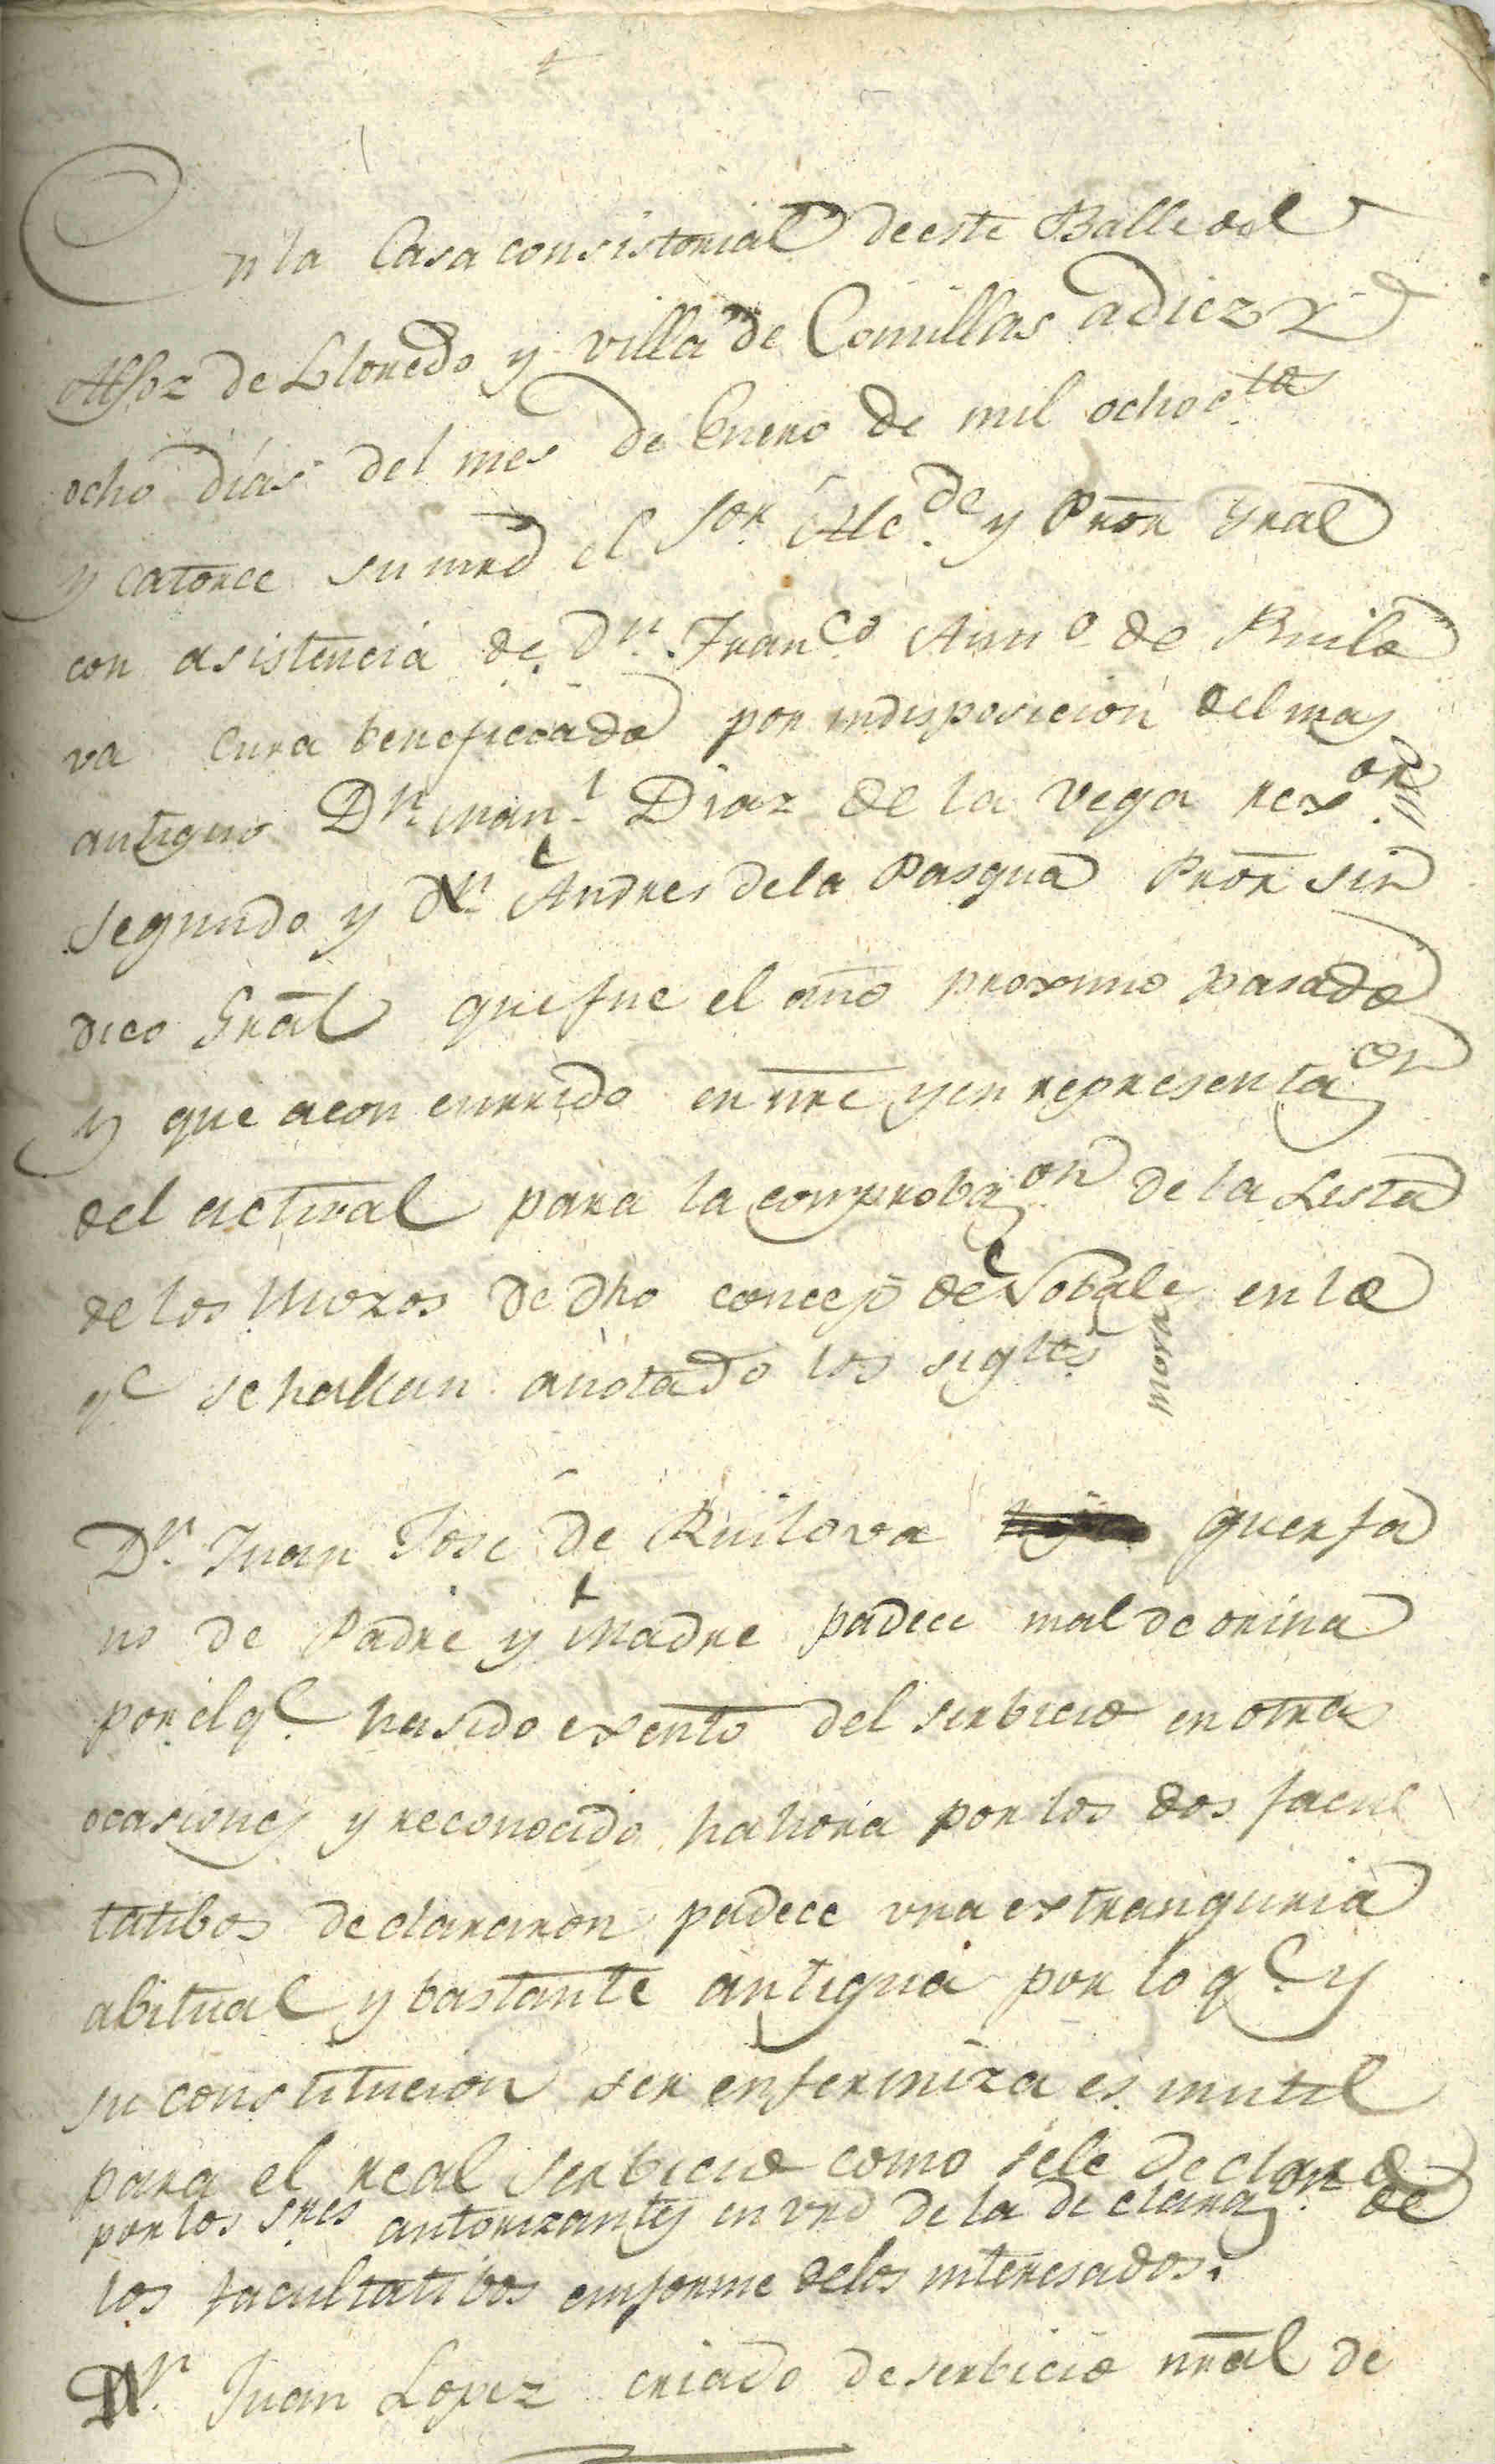 En la Casa consistorial de este Balle del
Alfoz de Lloredo y villa de Comillas a diez y
ocho dias del mes de Enero de mil ochoctos
y catorce su mrd el Sor Alcde y Pror Gral
con asistencia de Dn Franco Annº de Ruilo
va Cura beneficiado por indisposicion del mas
antiguo Dn Manl Diaz de la Vega rexor
segundo y Dn Andres de la Pasqua Pror Sin
dico Gral que fue el año proximo pasado
y que a con currido en nre y en representaon
del actual para la comprobaon de la Lista
de los Mozos de dho concejo de
en la
qe se hallan anotado los sigtes
Dn Juan Jose de Ruilova guerfa
no de Padre y Madre padece mal de orina
por el qe ha sido exento del serbicio en otras
ocasiones y reconocido hahora por los dos facul
tatibos declararon padece una extranguria
abitual y bastante antigua por lo qe y
su constitucion ser enfermiza es inutil
para el real serbicio como se le declaro
por los sres autorizantes en vrd de la declaraon de
los facultatibos e informe de los interesados.
Dn Juan Lopez criado de serbicio nral de